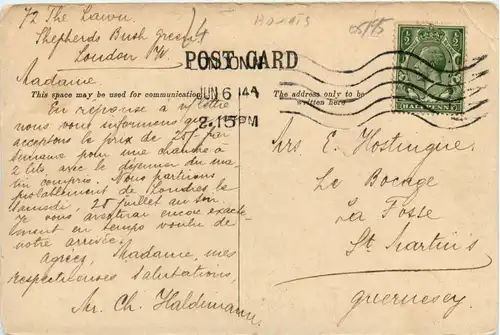 72 The Lawn
Shepherds Bush Green
London W
POST CARD
LONDON W
JUN 6 14
2.15 PM
HALFPENNY
This space may be used for communication
The address only to be
written here
Madame
En réponse à v/lettre
nous vous informons que nous
acceptons le prix de 25/- par
semaine pour une chambre à
2 lits, avec le déjeuner du ma-
tin compris. Nous partirons
probablement de Londres le
Samedi, 25 juillet au soir.
Je vous avertirai encore exacte-
ment en temps voulu de
notre arrivée.
Agréez, Madame, mes
respectueuses salutations,
Mr. Ch. Haldimann
Mrs E. Hostingue
Le Bocage
La Fosse
St. Martin's
Guernesey